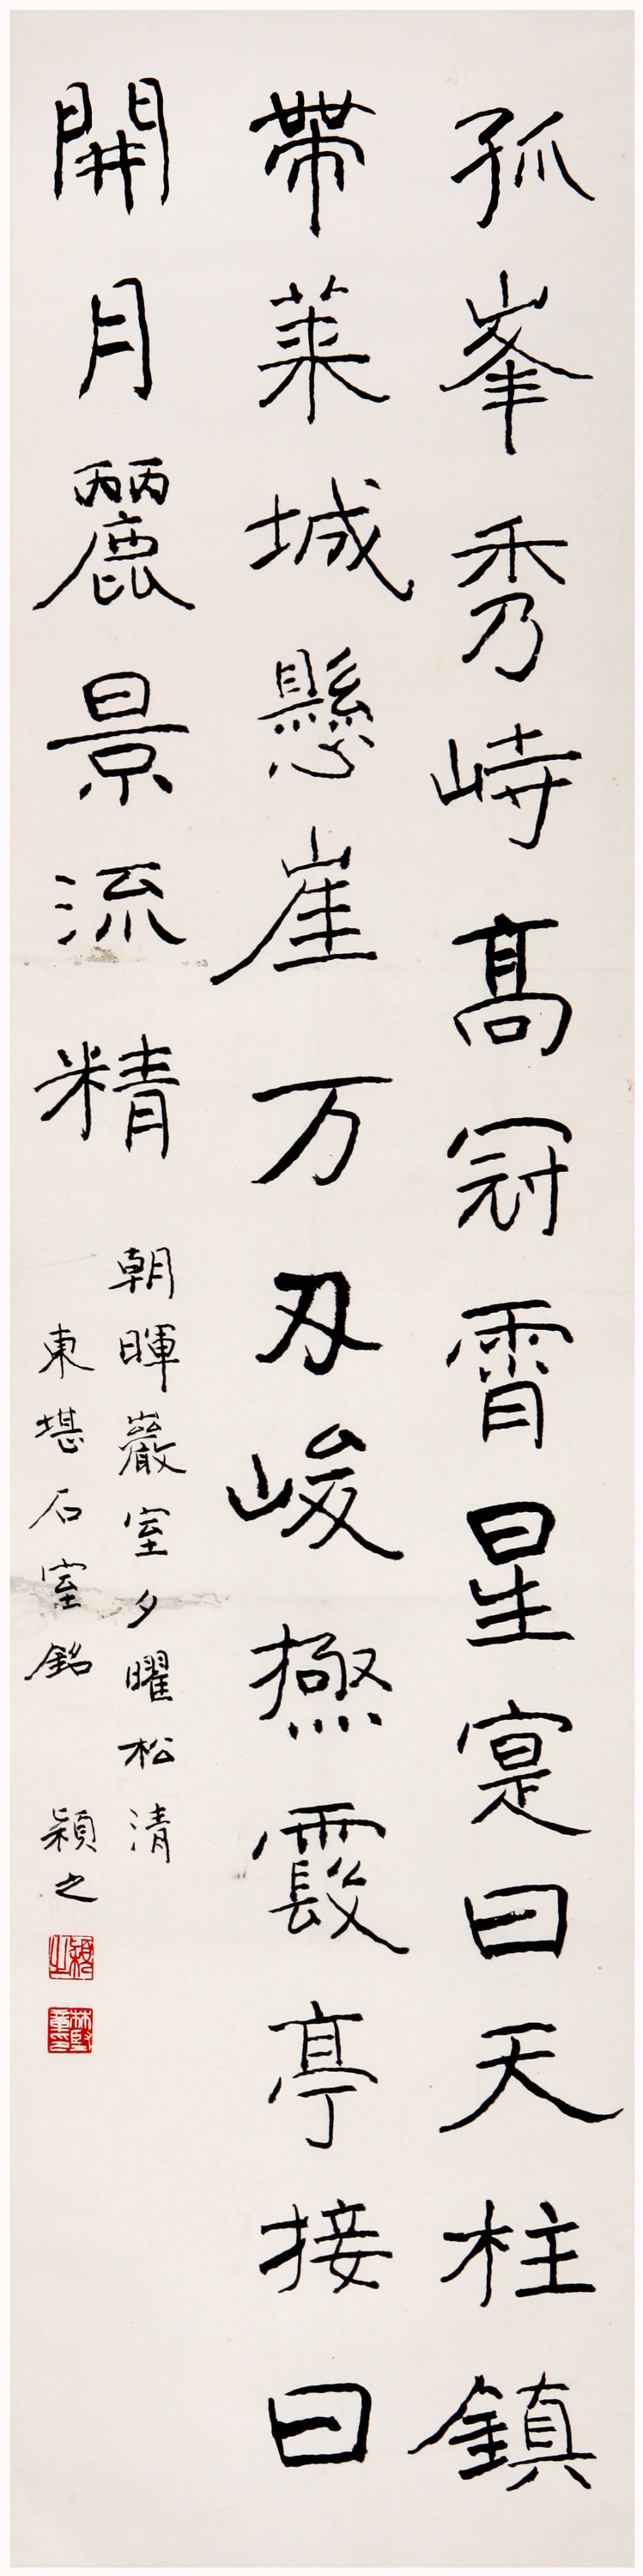 孤峯秀峙髙冠霄星寔曰天柱鎮
帶萊城懸崖万刃峻極霞亭接日
開月麗景流精
朝暉巖室夕曜松清
東堪石室銘 穎之
穎之